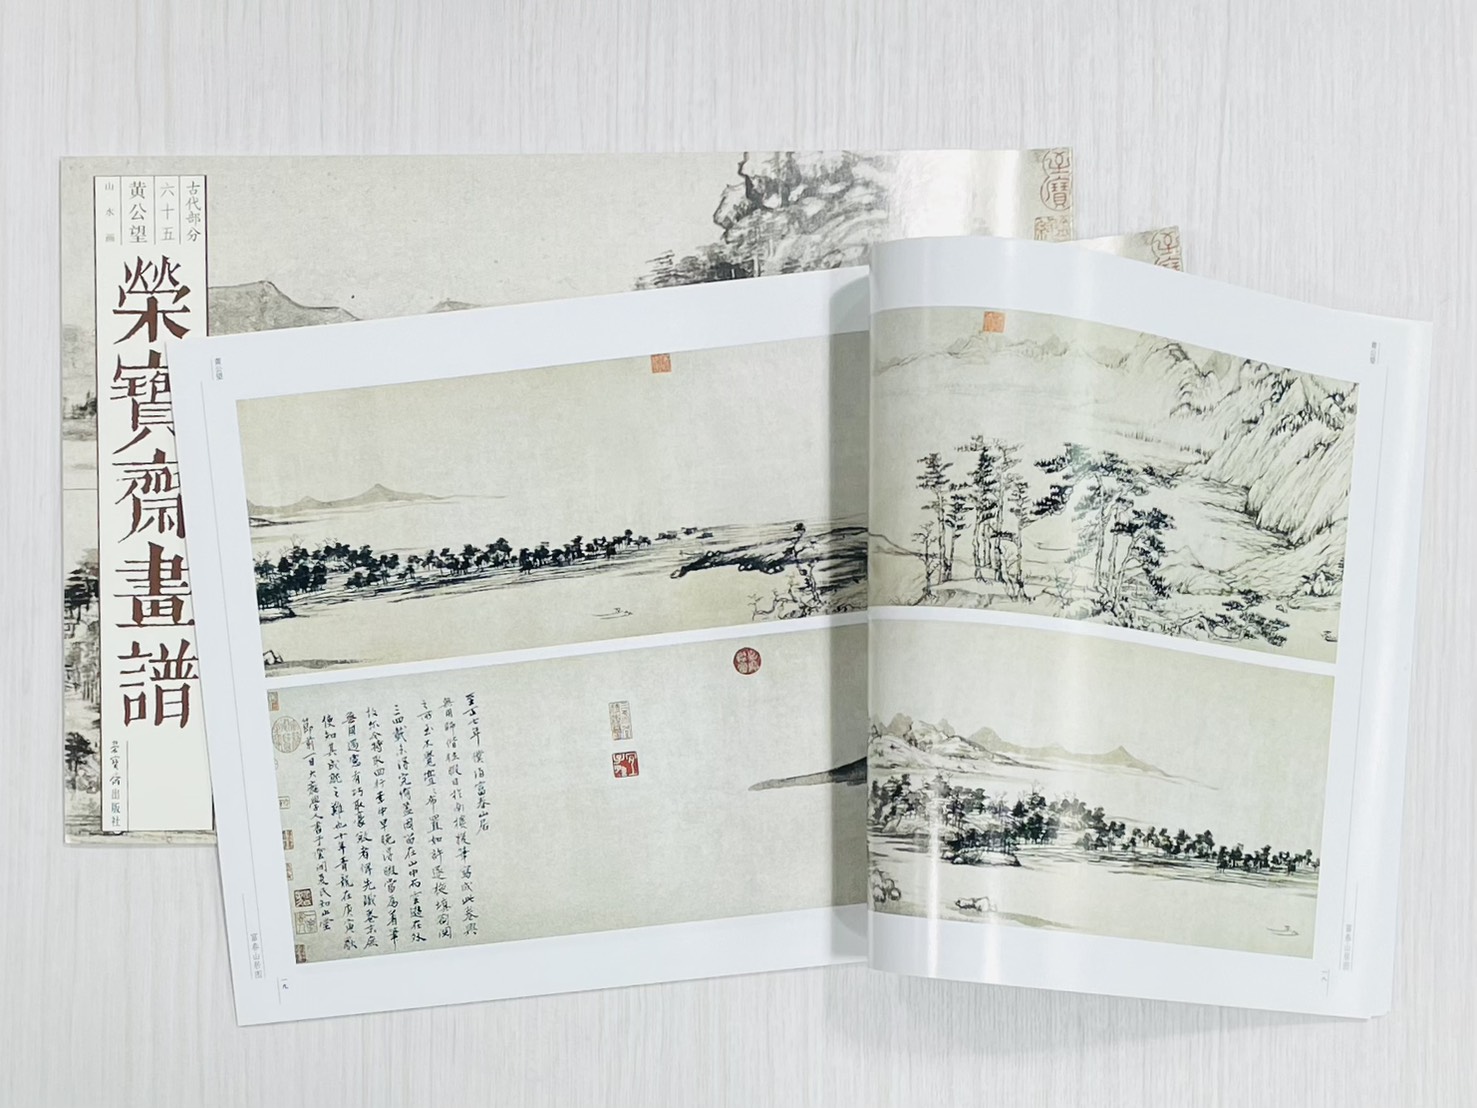 古代部分
六十五
黄公望
山水画
榮寶齋畫譜
榮寶齋出版社
至正七年僕歸富春山居
無用師偕往暇日於南樓援筆寫成此卷興
之所至不覺亹亹布置如許逐旋填劄閱
三四載未得完備蓋因留在山中而雲遊在外
故爾今特取回行李中早晚得暇當為着筆
無用過慮有巧取豪敚者俾先識卷末庶
使知其成就之難也十年青龍在庚寅歜
節前一日大癡學人書于雲間夏氏知止堂
黄公望
富春山居图
一九
黄公望
富春山居图
一八